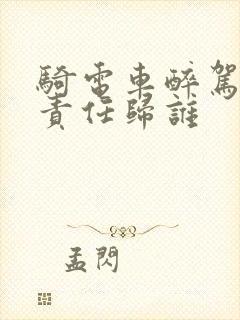 騎電車醉駕
責任歸誰
孟閃